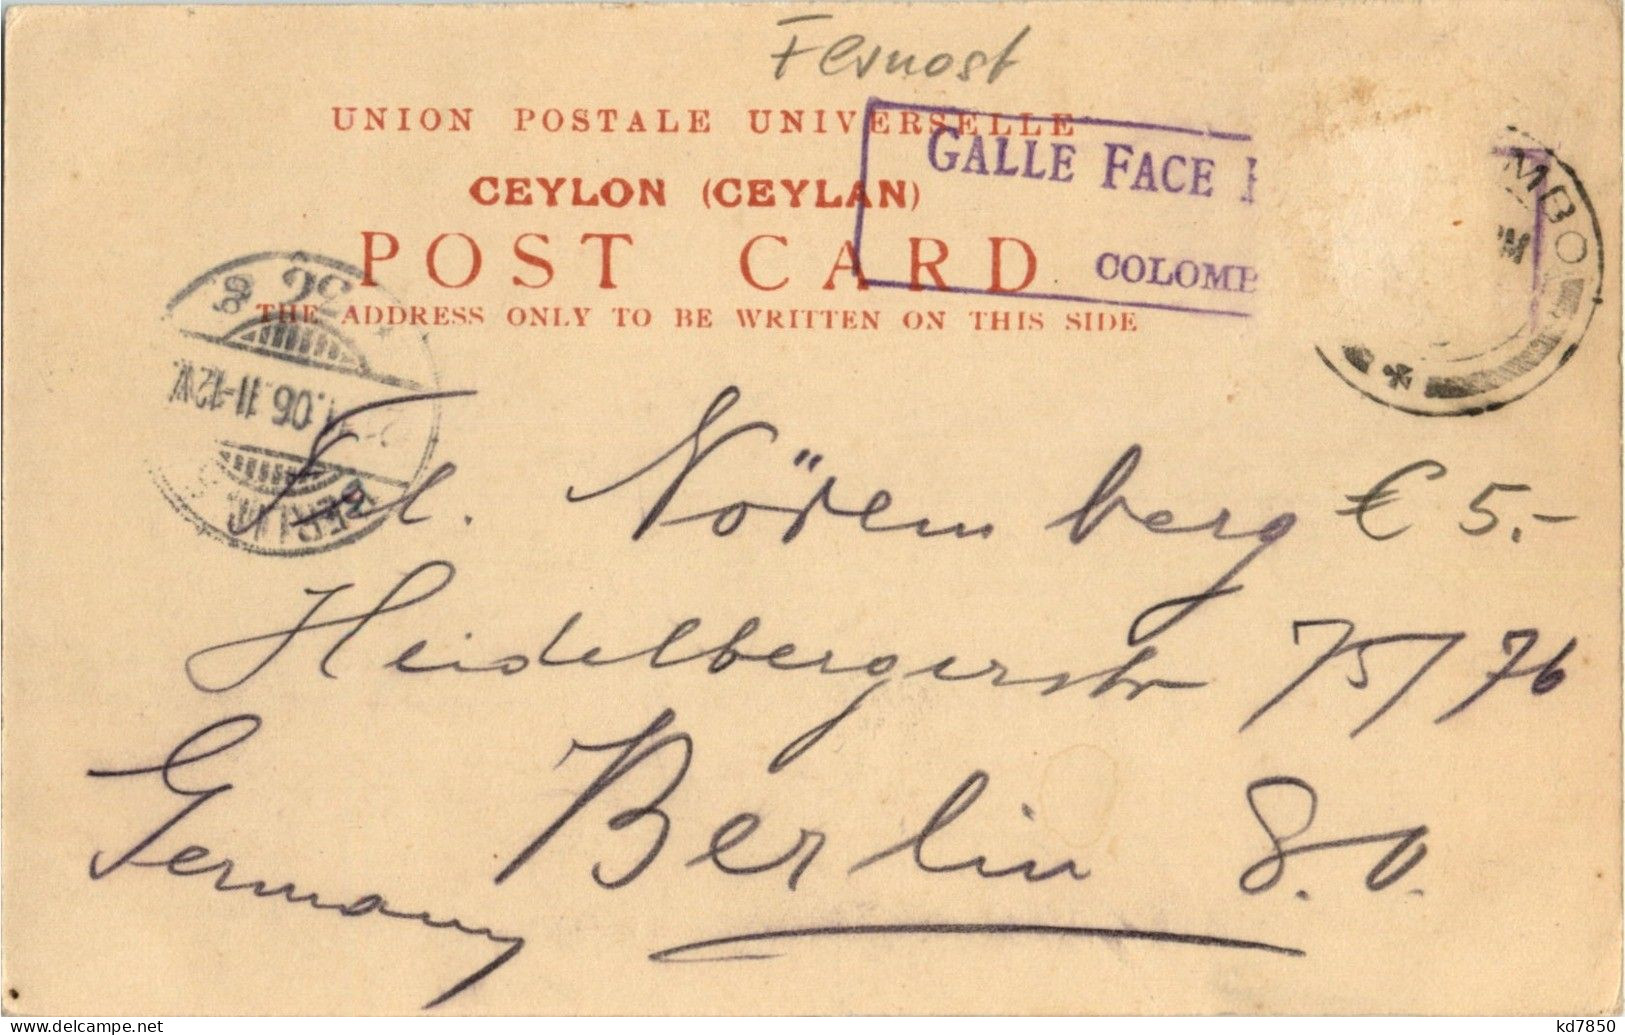 Fernost
UNION POSTALE UNIVERSELLE
CEYLON (CEYLAN)
POST CARD
THE ADDRESS ONLY TO BE WRITTEN ON THIS SIDE
GALLE FACE
COLOMB
MBO
PM
36
BERLIN
.06.11-12V.
Frl. Nöremberg € 5.-
Heidelbergerstr 75/76
Berlin S.O.
Germany
kd7850